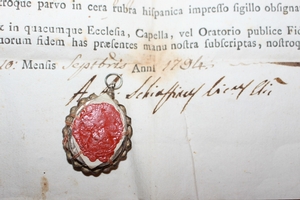 oque parvo in cera rubra hispanica impresso sigillo obsigna
in quacumque Ecclesia, Capella, vel Oratorio publice Fid
norum fidem has præsentes manu nostra subscriptas, nostroq
Mensis Septbris Anni 1794.